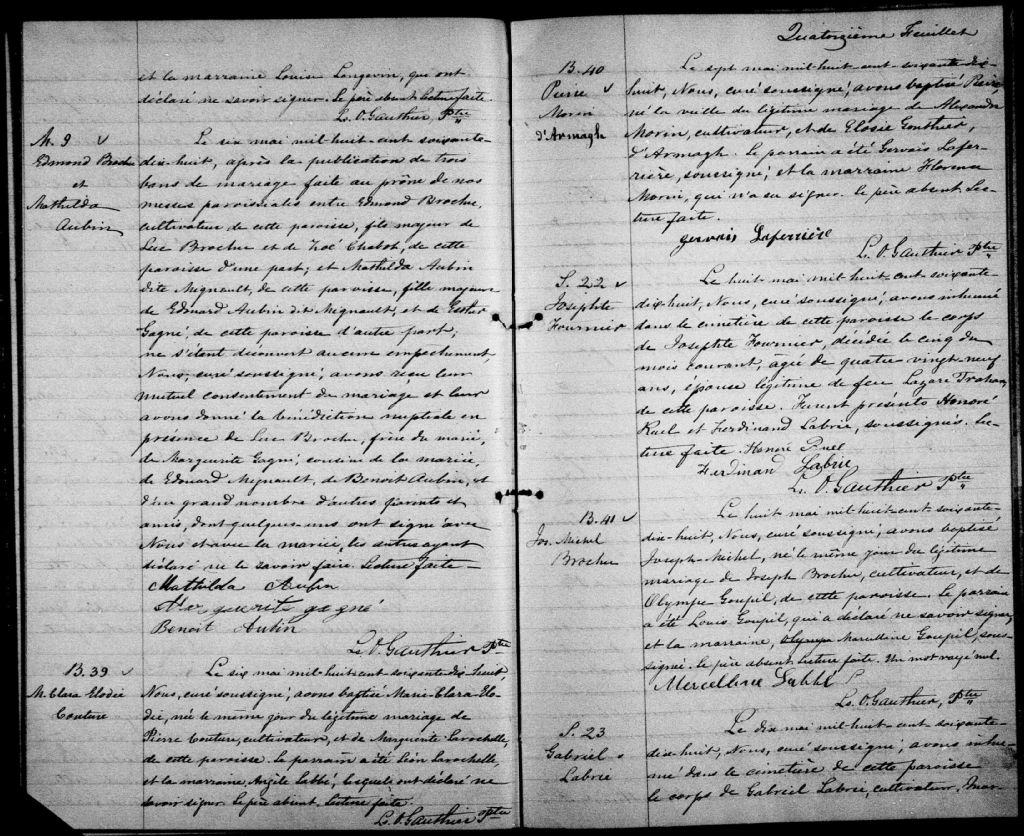 et la marraine Louise Langevin, qui ont
déclaré ne savoir signer. Le père absent. Lecture faite.
Ls. O. Gauthier, Ptre
M. 9
Edmond Brochu
et
Mathilda
Aubin
Le six mai mil-huit-cent soixante-
dix-huit, après la publication de trois
bans de mariage faite au prône de nos
messes paroissiales entre Edmond Brochu,
cultivateur de cette paroisse, fils majeur de
Luc Brochu et de Zoé Chabot, de cette
paroisse d'une part; et Mathilda Aubin
dite Mignault, de cette paroisse, fille majeure
de Edmond Aubin dit Mignault, et de Esther
Gagné, de cette paroisse d'autre part;
ne s'étant découvert aucun empêchement,
Nous, curé soussigné, avons reçu leur
mutuel consentement de mariage et leur
avons donné la bénédiction nuptiale en
présence de Luc Brochu, frère du marié,
de Marguerite Gagné, cousine de la mariée,
de Edouard Mignault, de Benoit Aubin, et
d'un grand nombre d'autres parents et
amis, dont quelques-uns ont signé avec
Nous et avec la mariée, les autres ayant
déclaré ne le savoir faire. Lecture faite
Mathilda Aubin
Marguerite gagné
Benoit Aubin
Ls O. Gauthier Ptre
B. 39
M. Clara Elodie
Couture
Le six mai mil-huit-cent soixante-dix-huit,
Nous, curé soussigné, avons baptisé Marie-Clara-Elo-
die, née le même jour du légitime mariage de
Pierre Couture, cultivateur, et de Marguerite Larochelle,
de cette paroisse. Le parrain a été Léon Larochelle,
et la marraine Angèle Labbé, lesquels ont déclaré ne
savoir signer. Le père absent. Lecture faite.
Ls. O. Gauthier Ptre
Quatorzième Feuillet
B. 40
Pierre
Morin
d'Armagh
Le sept mai mil-huit-cent soixante-dix-
huit, Nous, curé soussigné, avons baptisé Pierre
né la veille du légitime mariage de Alexandre
Morin, cultivateur, et de Elosie Gonthier,
d'Armagh. Le parrain a été Gervais Lafer-
rière, soussigné; et la marraine
Morin, qui n'a su signer. Le père absent. Lec-
ture faite.
gervais Laferrière
Ls. O. Gauthier Ptre
S. 22
Josephte
Fournier
Le huit mai mil-huit-cent-soixante-
dix-huit, Nous, curé soussigné, avons inhumé
dans le cimetière de cette paroisse le corps
de Josephte Fournier, décédée le cinq du
mois courant, agée de quatre-vingt-neuf
ans, épouse légitime de feu Lazare Trahan,
de cette paroisse. Furent présents Honoré
Ruel et Ferdinand Labrie, soussignés. Lec-
ture faite. Honoré Ruel
Ferdinand Labrie
Ls. O. Gauthier Ptre
B. 41
Jos. Michel
Brochu
Le huit mai mil-huit-cent soixante-
dix-huit, Nous, curé soussigné, avons baptisé
Joseph-Michel, né le même jour du légitime
mariage de Joseph Brochu, cultivateur, et de
Olympe Goupil, de cette paroisse. Le parrain
a été Louis Goupil, qui a déclaré ne savoir signer,
et la marraine, Olympe Marcelline Goupil, sous-
signée. Le père absent. Lecture faite. Un mot rayé nul.
Mercelline Labbé
Ls. O. Gauthier, Ptre
S. 23
Gabriel
Labrie
Le dix mai mil-huit-cent soixante-
dix-huit, Nous, curé soussigné, avons inhu-
mé dans le cimetière de cette paroisse
le corps de Gabriel Labrie, cultivateur,